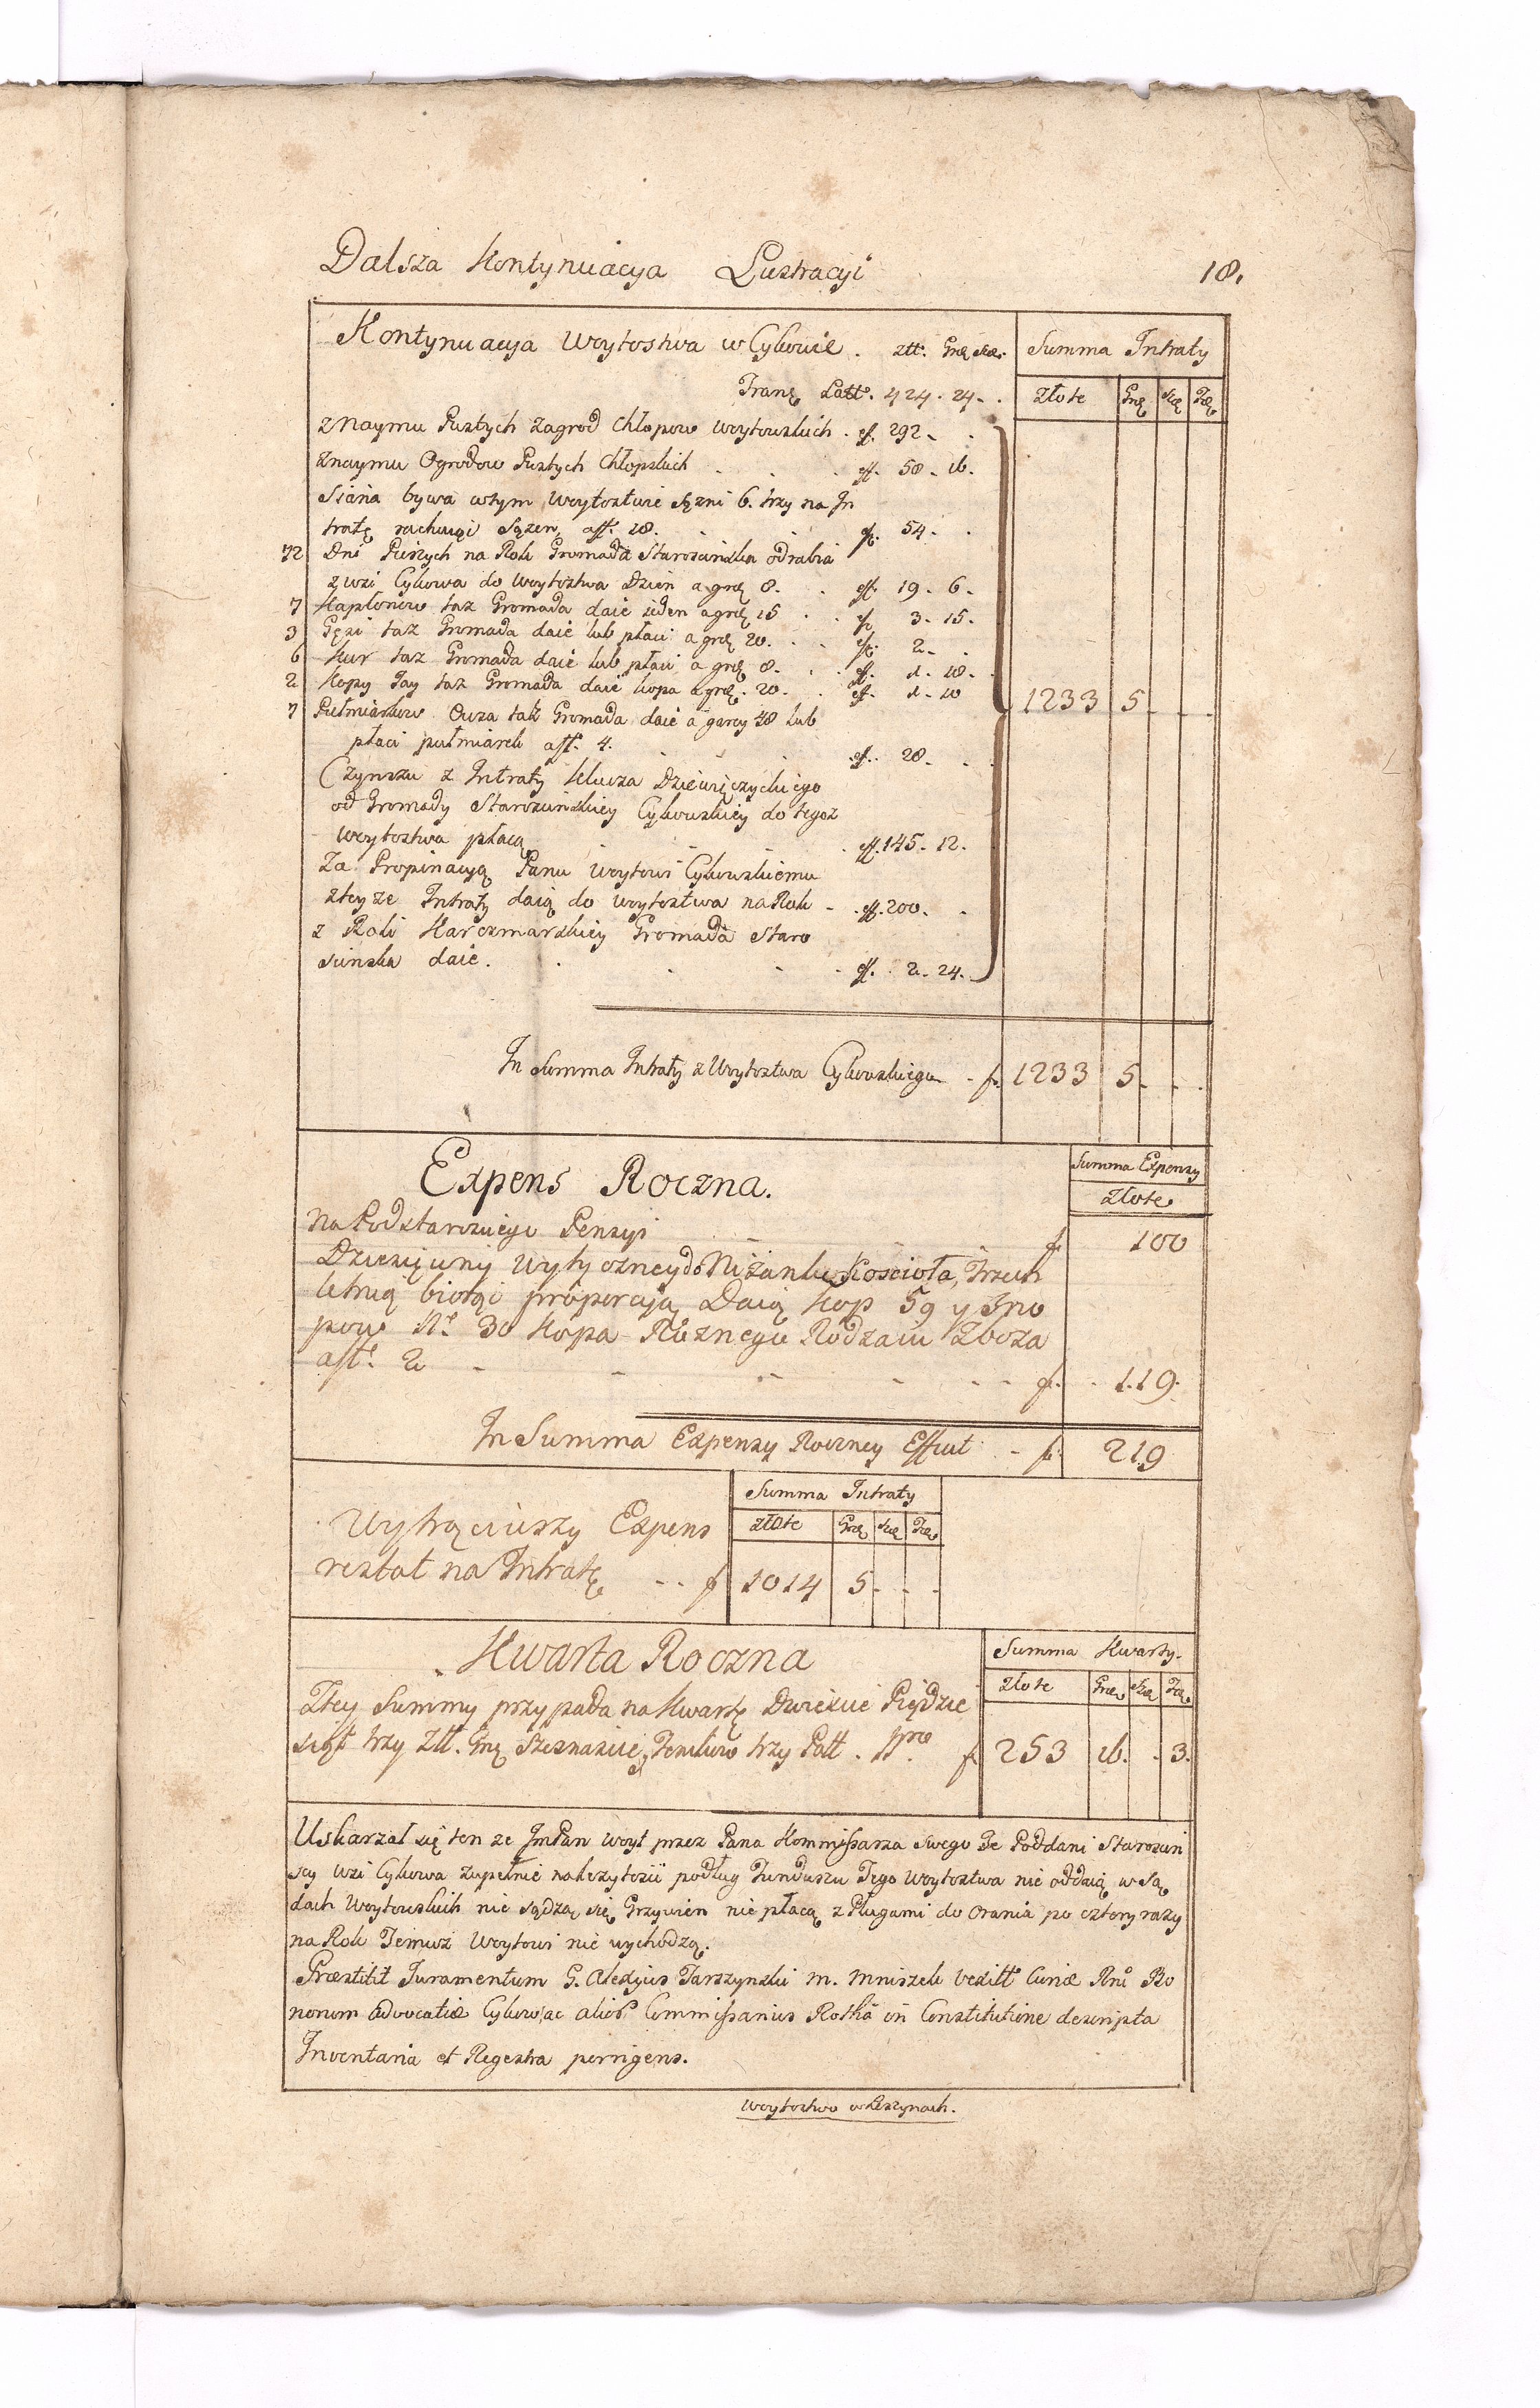 Dalsza Kontynuacya Lustracyi 18.
Kontynuacya Woytostwa w Cykowie. złł. Grę Sze. Summa Intraty
Tranę Latt. 424. 24. Złote Grę Szę Fę
z Naymu Pustych Zagrod Chłopow Woytowskich . ff. 292 -
z naymu Ogrodow Pustych Chłopskich ff. 58 - 16.
Siana bywa wtym Woytostwie Sązni 6. trzy na In
tratę rachuąc Sązen aff. 18. ff. 54 -
72 Dni Pieszych na Rok Gromada Starościnska odrabia
z wsi Cykowa do Woytostwa Dzien a grę 8. ff. 19. 6.
7 Kapłonow taż Gromada daie ieden a grę 15 ff. 3. 15.
3 Gęsi taż Gromada daie lub płaci a grę 20. ff. 2 -
6 Kur taz Gromada daie lub płaci a grę 8. ff. 1. 18.
2 Kopy Jay taż Gromada daie kopa a grę. 20. ff. 1 - 10 1233 5
7 Pułmiarkow Owsa taż Gromada daie a garcy 18 lub
płaci pułmiarek aff. 4. ff. 28.
Czynszu z Intraty Klucza Dziewięczyckiego
od Gromady Starościnskiey Cykowskiey do tegoż
Woytostwa płacą ff. 145. 12.
Za Propinacyą Panu Woytowi Cykowskiemu
ztey ze Intraty daią do Woytostwa na Rok - ff. 200.
z Roli Karczmarskiey Gromada Staro
scinska daie. ff. 2. 24.
In Summa Intraty z Woytostwa Cykowskiego - f. 1233 5
Expens Roczna. Summa Expensy
Złote
Na Podstarosciego Pensyi f. 100
Dziesięciny Wytyczney do Niżanko Kościoła, Trzech
letnią biorąc proporcyą Daią Kop 59 y Sno
pow Nr. 30 Kopa Roznego Rodzaiu Zboza
aff. 2 f. 119.
In Summa Expensy Roczney Effcut - f. 219
Summa Intraty
Wytrąciwszy Expens złote Grę szę Fę
restat na Intratę - - f 1014 5
Kwarta Roczna Summa Kwarty.
Złote Grę Szę Fę
Ztey Summy przypada na Kwartę Dwiescie Piędzie
siąt trzy Złł. Grę Szesnascie, Fenikow trzy f. 253 16. 3.
Uskarzał się ten ze JmPan Woyt przez Pana Kommissarza swego Ze Poddani Starościn
scy Wsi Cykowa Zupełnie nalezytosci podług Funduszu Tego Woytostwa nie oddaią, w Są
dach Woytowskich nie sądzą się, Grzywien nie płacą z Pługami do Orania po cztery razy
na Rok Temuż Woytowi nie wychodzą.
Præstitit Juramentum G. Alexius Tarszynski M. Mniszek Curiæ Bo
norum Advocatiæ Cykow, ac Commissarius Rotha in Constitutione descripta
Inventaria et Regestra porrigens.
Woytostwo w Leszynach.